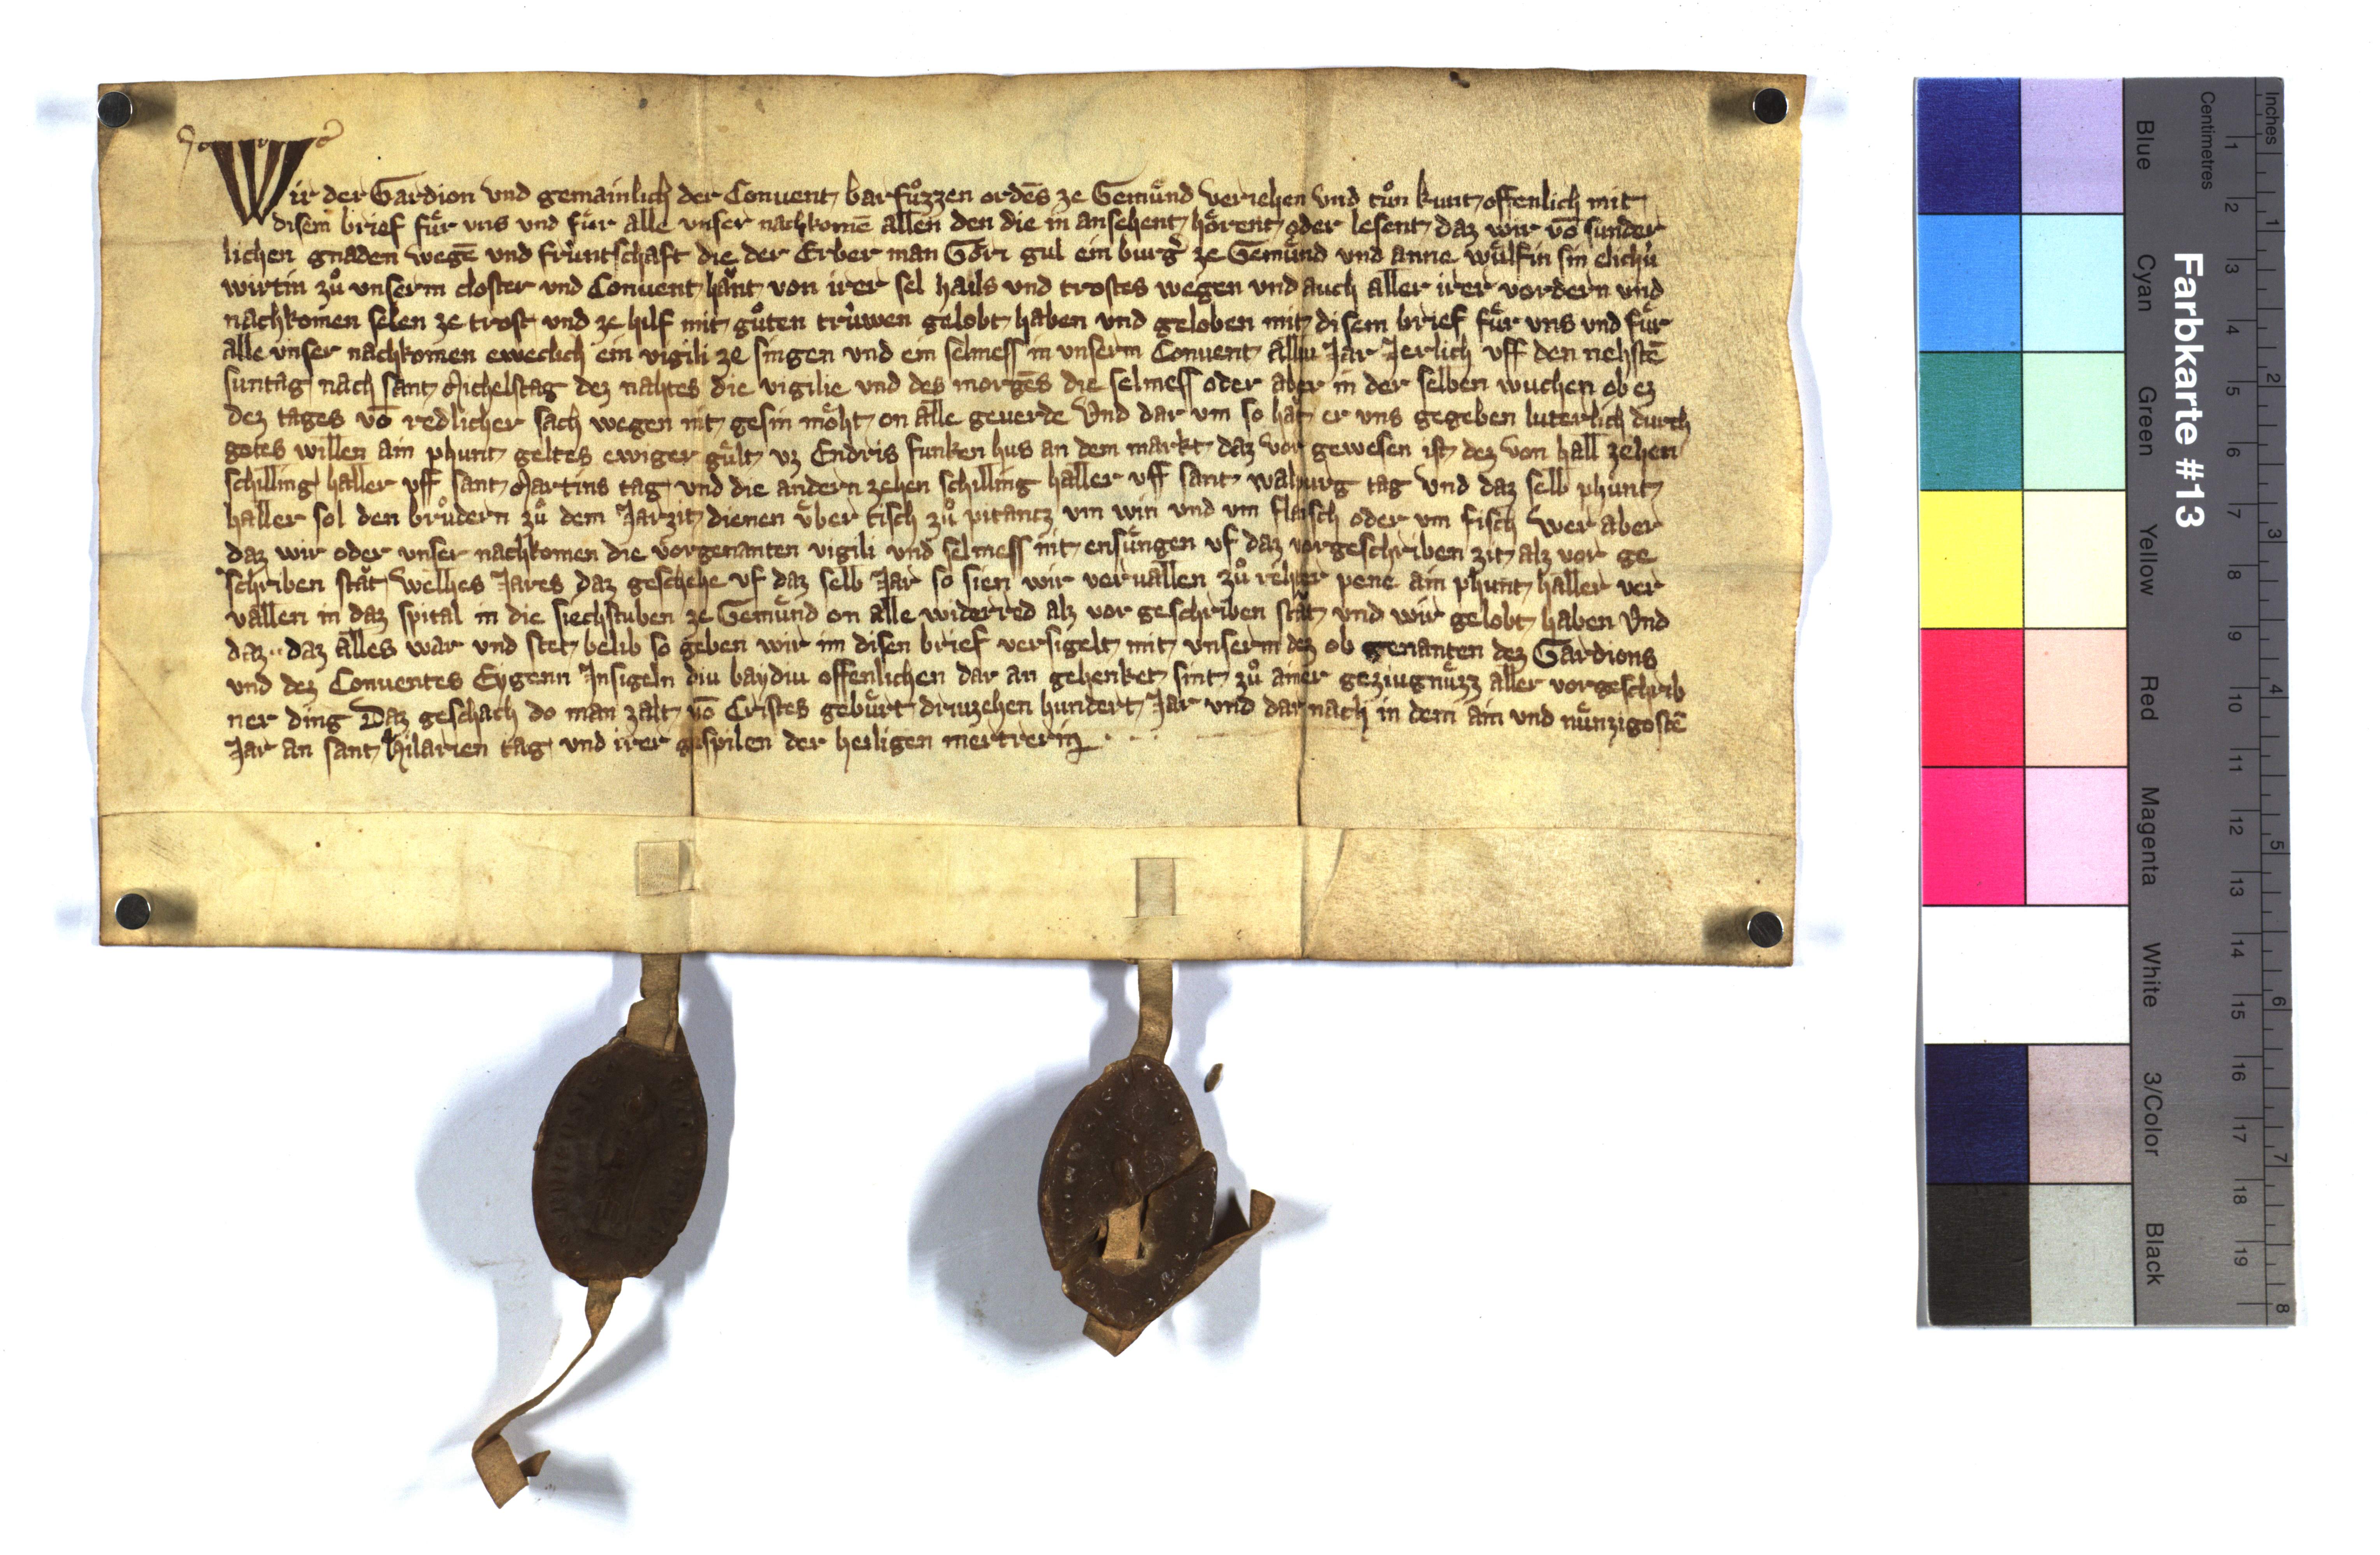 Wir der Gardion vnd gemainlich der Conuent barfuͦzzen ordēs ze Gemuͤnd veriehen vnd tuͦn kunt offenlich mit
disem brief fuͤr vns vnd fuͤr alle vnser nachkomē allen den die in ansehent hoͤrent oder lesent daz wir vō sunder
lichen gnaden wegē vnd fruntschaft die der Erber man Goͤri gul ein burgʼ ze Gemuͤnd vnd anne wuͤlfin sin elichuͥ
wirtin zuͦ vnserm closter vnd Conuent haͧnt von irer sel hails vnd trostes wegen vnd auch aller irer vordern vnd
nachkomen selen ze trost vnd ze hilf mit guͦten truͥwen gelobt haben vnd geloben mit disem brief fuͤr vns vnd fuͤr
alle vnser nachkomen eweclich ein vigili ze singen vnd ein selmess in vnserm Conuent alliu Jar Jerlich vff den nehstē
suntag nach sant Michelstag dez nahtes die vigilie vnd des morgēs die selmess oder aber in der selben wuchen ob ez
dez tages vō redlicher sach wegen nit gesin moͤht on alle geuerde Vnd dar vm so haͧt er vns gegeben luterlich durch
gotes willen ain phunt geltes ewiger guͤlt vz Endris funken hus an dem markt daz vor gewesen ist dez von hall zehen
schilling haller vff sant Martins tag vnd die andern zehen schilling haller vff sant walpurg tag vnd daz selb phunt
haller sol den bruͦdern zuͦ dem Jarzit dienen uͤber tisch zuͦ pitantz vm win vnd vm flaisch oder vm fisch wer aber
daz wir oder vnser nachkomen die vorgenanten vigili vnd selmess nit ensuͤngen vf daz vorgeschriben zit alz vor ge
schriben staͧt welhes Jares daz geschehe vf daz selb Jar so sien wir veruallen zuͦ rehter pene ain phunt haller ver
vallen in daz spital in die siechstuben ze Gemuͤnd on alle widerred alz vor geschriben staͧt vnd wir gelobt haben Vnd
daz daz alles war vnd stet belib so geben wir im disen brief versigelt mit vnserm dez ob genanten dez Gardions
vnd dez Conuentes Eygenn Insigeln diu baydiu offenlichen dar an gehenket sint zuͦ ainer geziugnuͤzz aller vorgeschrib
ner ding Daz geschach do man zalt vō Cristes gebuͤrt driuzehen hundert Jar vnd dar nach in dem ain vnd nuͤnzigostē
Jar an sant hilarien tag vnd irer gespilen der heiligen mertrerin
Farbkarte #13
Blue Cyan Green Yellow Red Magenta White 3/Color Black
Centimetres 1 2 3 4 5 6 7 8 9 10 11 12 13 14 15 16 17 18 19
Inches 1 2 3 4 5 6 7 8